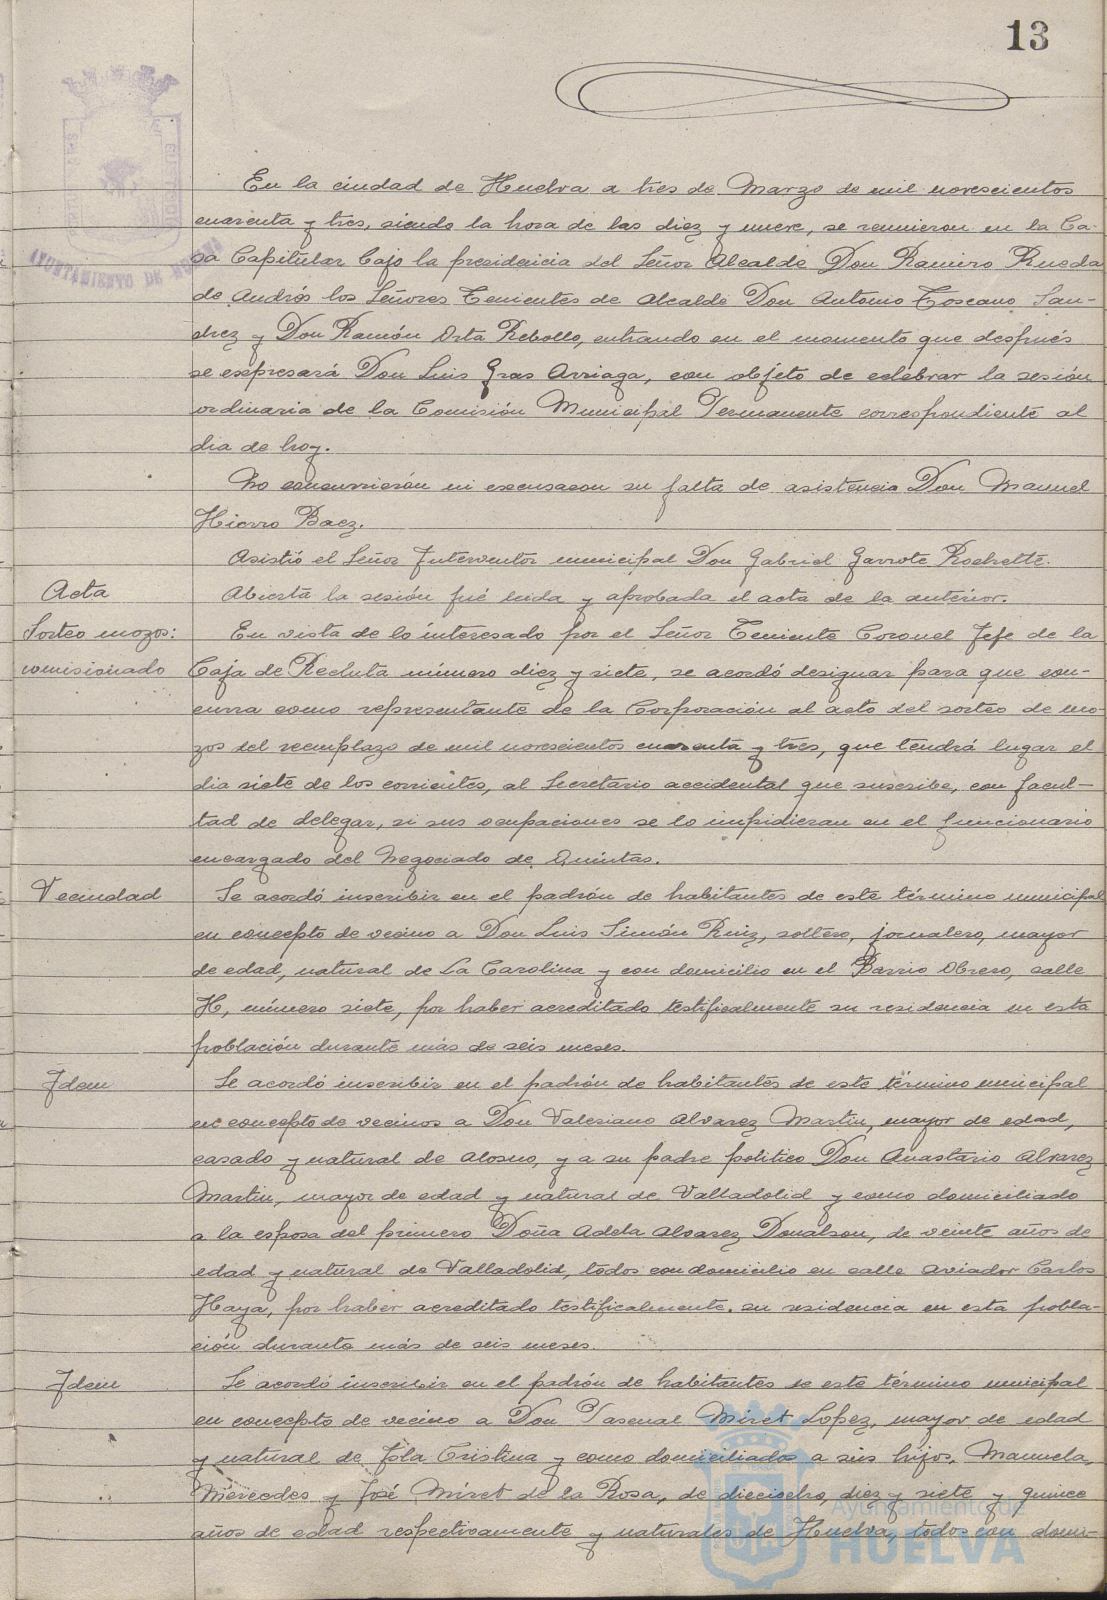 13
AYUNTAMIENTO DE HUELVA
En la ciudad de Huelva a tres de Marzo de mil novescientos
cuarenta y tres, siendo la hora de las diez y nueve, se reunieron en la Ca-
sa Capitular bajo la presidencia del Señor Alcalde Don Ramiro Rueda
de Andrés los Señores Tenientes de Alcalde Don Antonio Toscano San-
chez y Don Ramón Orta Rebollo, entrando en el momento que después
se espresará Don Luis Gras Arriaga, con objeto de celebrar la sesión
ordinaria de la Comisión Municipal Permanente correspondiente al
dia de hoy.
No concurrieron ni escusaron su falta de asistencia Don Manuel
Hierro Baez.
Asistió el Señor Interventor municipal Don Gabriel Garrote Rochette.
Acta
Abierta la sesión fué leida y aprobada el acta de la anterior.
Sorteo mozos:
comisionado
En vista de lo interesado por el Señor Teniente Coronel Jefe de la
Caja de Recluta número diez y siete, se acordó designar para que con-
curra como representante de la Corporación al acto del sorteo de mo-
zos del reemplazo de mil novescientos cuarenta y tres, que tendrá lugar el
dia siete de los corrientes, al Secretario accidental que suscribe, con facul-
tad de delegar, si sus ocupaciones se lo impidieran en el funcionario
encargado del Negociado de Quintas.
Vecindad
Se acordó inscribir en el padrón de habitantes de este término municipal
en concepto de vecino a Don Luis Simón Ruiz, soltero, jornalero, mayor
de edad, natural de La Carolina y con domicilio en el Barrio Obrero, calle
H, número siete, por haber acreditado testificalmente su residencia en esta
población durante más de seis meses.
Idem
Se acordó inscribir en el padrón de habitantes de este término municipal
en concepto de vecinos a Don Valeriano Alvarez Martin, mayor de edad,
casado y natural de Alosno, y a su padre politico Don Anastasio Alvarez
Martin, mayor de edad y natural de Valladolid y como domiciliado
a la esposa del primero Doña Adela Alvarez Donalson, de veinte años de
edad y natural de Valladolid, todos con domicilio en calle Aviador Carlos
Haya, por haber acreditado testificalmente su residencia en esta pobla-
ción durante más de seis meses.
Idem
Se acordó inscribir en el padrón de habitantes de este término municipal
en concepto de vecino a Don Pascual Miret Lopez, mayor de edad
y natural de Isla Cristina y como domiciliados a sus hijos, Manuela,
Mercedes y José Miret de la Rosa, de dieciocho, diez y siete y quince
años de edad respectivamente y naturales de Huelva, todos con domi-
Ayuntamiento de
HUELVA